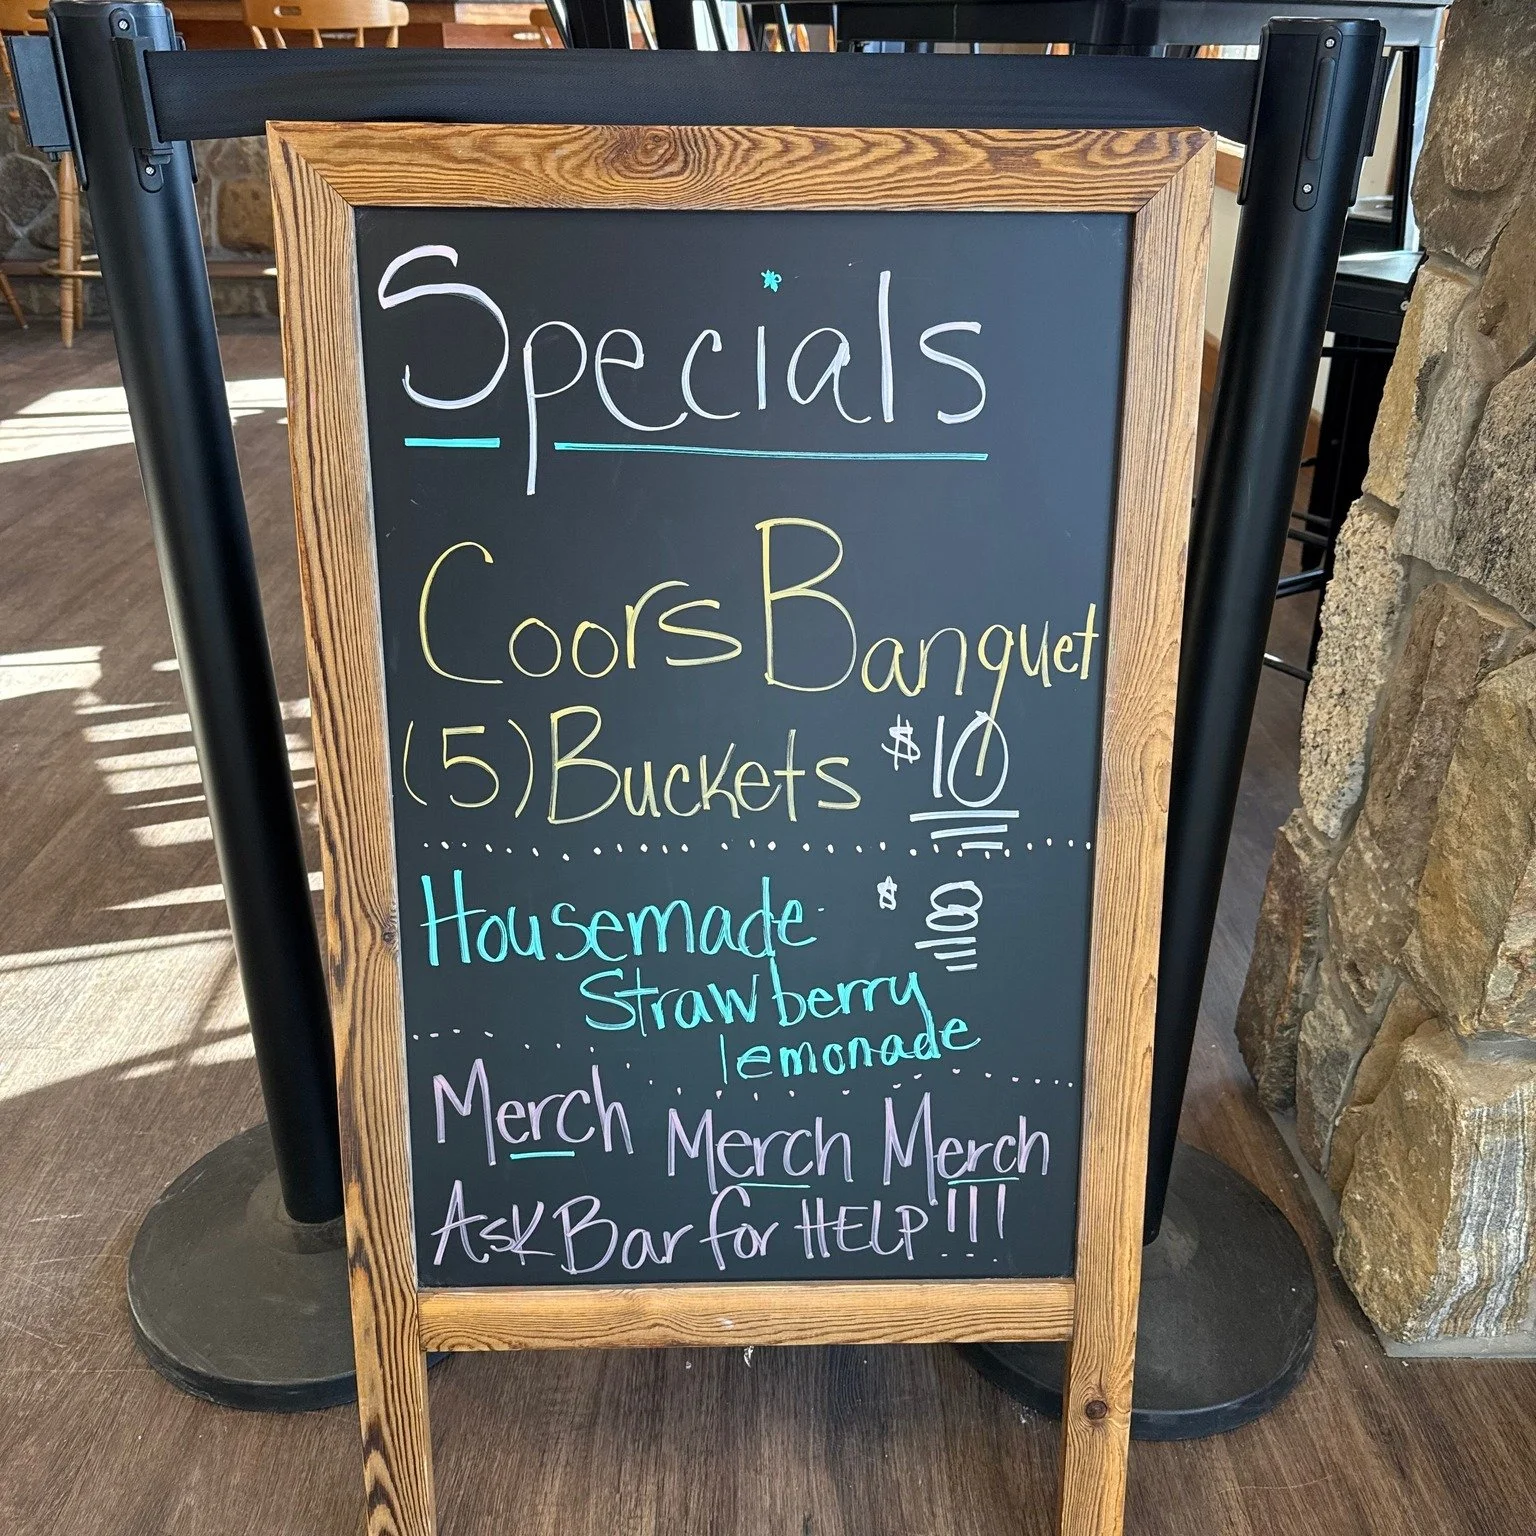 Specials
Coors Banquet
(5) Buckets $10
Housemade $8
Strawberry
lemonade
Merch Merch Merch
Ask Bar for HELP!!!